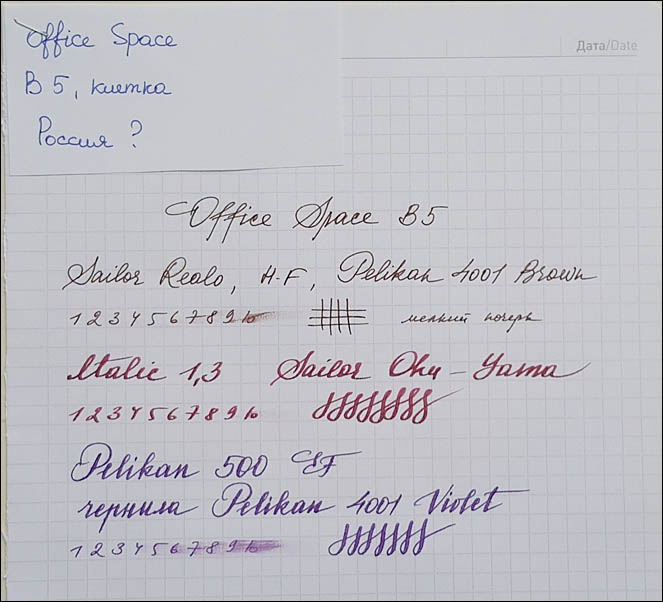 Office Space
B 5, клетка
Россия ?
Дата/Date
Office Space B5
Sailor Realo, H-F, Pelikan 4001 Brown
1 2 3 4 5 6 7 8 9 10
мелкий почерк
Italic 1,3 Sailor Oku-Yama
1 2 3 4 5 6 7 8 9 10
Pelikan 500 EF
чернила Pelikan 4001 Violet
1 2 3 4 5 6 7 8 9 10